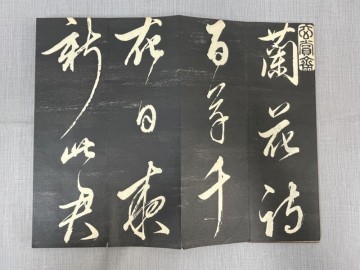 玄賞齋
蘭花詩
百草千
花日夜
新此君